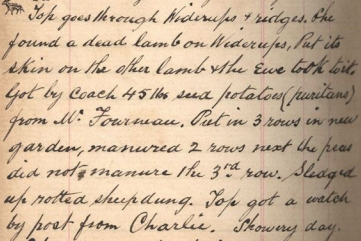 Top goes through Widerups & ridges. She
found a dead lamb on Widerups, Put its
skin on the other lamb & the Ewe took to it.
Got by Coach 45 lbs seed potatoes (puritans)
from Mr. Fourneau. Put in 3 rows in new
garden, manured 2 rows next the peas
did not manure the 3rd row. Sledged
up rotted sheepdung. Top got a watch
by post from Charlie. Showery day.